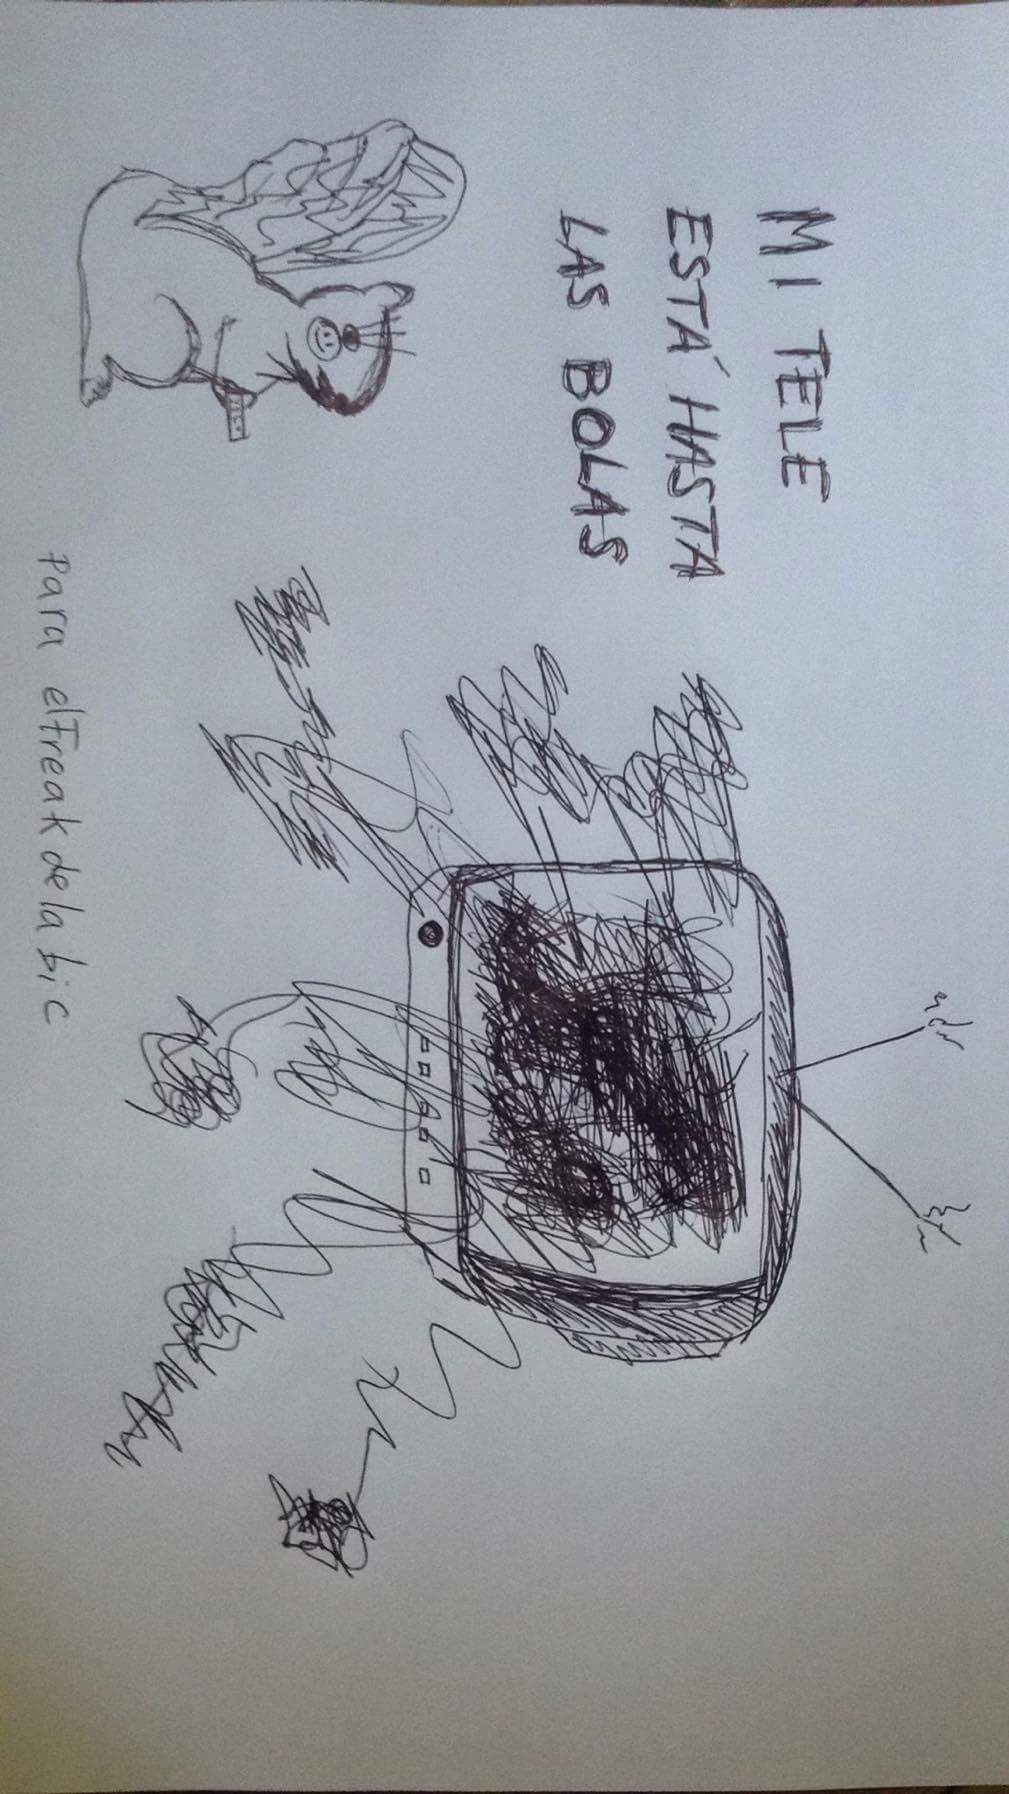 MI TELE
ESTÁ HASTA
LAS BOLAS
para elFreak de la bic